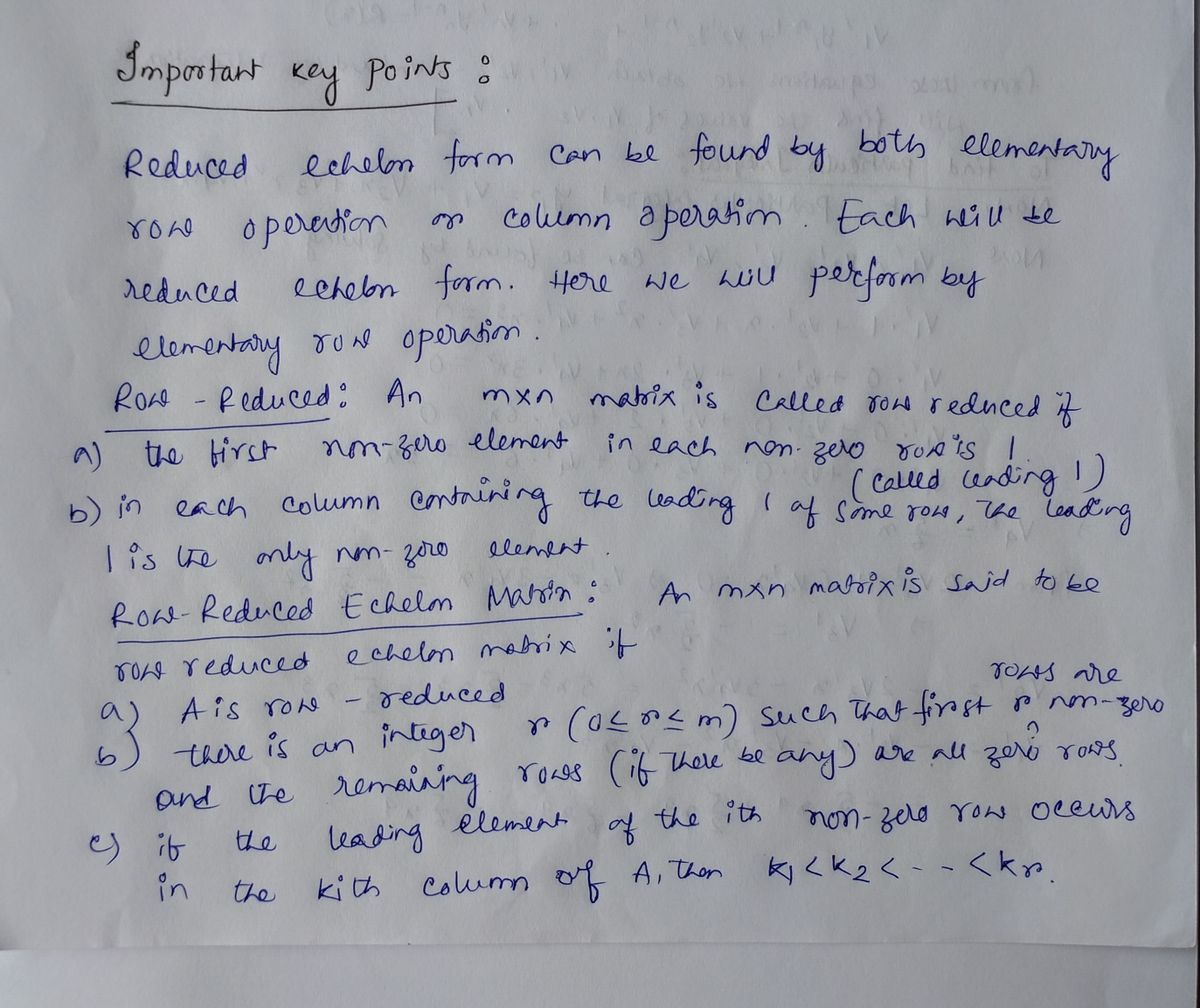 Important key points :
Reduced echelon form can be found by both elementary
row operation or column operation. Each will be
reduced echelon form. Here we will perform by
elementary row operation.
Row - Reduced : An m×n matrix is called row reduced if
a) the first non-zero element in each non-zero row is 1.
(called leading 1)
b) in each column containing the leading 1 of some row, the leading
1 is the only non-zero element.
Row-Reduced Echelon Matrix : An m×n matrix is said to be
row reduced echelon matrix if
a) A is row - reduced
b) there is an integer r (0≤r≤m) such that first r rows are non-zero
and the remaining rows (if there be any) are all zero rows.
c) if the leading element of the ith non-zero row occurs
in the kith column of A, then k1<k2<--<kr.